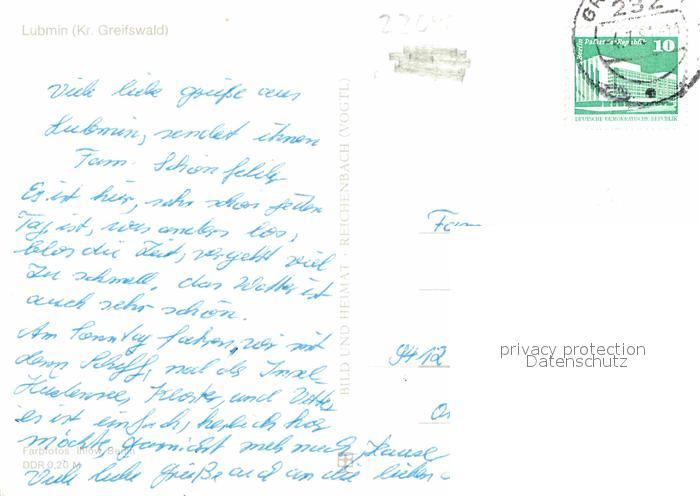 Lubmin (Kr. Greifswald)
232
Berlin Palast der Republik 10
DEUTSCHE DEMOKRATISCHE REPUBLIK
Viele liebe grüße aus
Lubmin, sendet ihnen
Fam. Schönfeld
Es ist hier, sehr schön jeden
Tag ist, was anderes los,
blos die Zeit, vergeht viel
Zu schnell, das Wetter ist
auch sehr schön.
Am Sonntag fahren, wir mit
dem Schiff, nach die Insel
Hiddensee, Kloster, und Vitte
es ist einfach, herlich hir
möchte garnicht mehr nach, Hause
Viele liebe Grüße auch an die lieben
BILD UND HEIMAT · REICHENBACH (VOGTL)
Fam
9412
privacy protection
Datenschutz
Farbfotos: Ihlow, Berlin
DDR 0,20 M